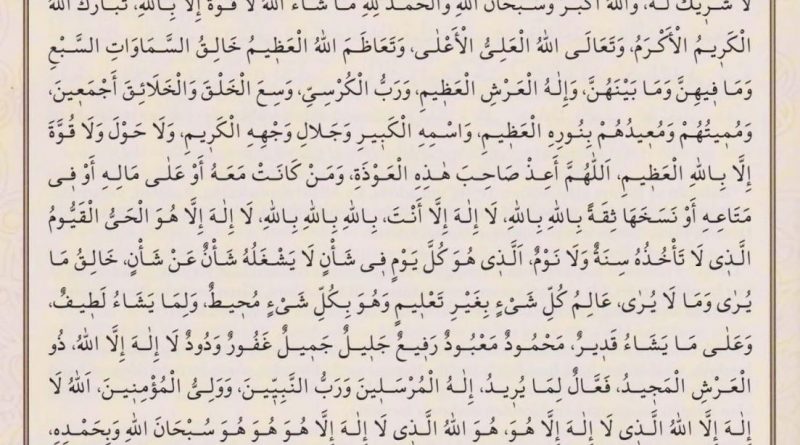 لَا شَرِيكَ لَهُ، وَاللهُ اَكْبَرُ وَسُبْحَانَ اللهِ وَالْحَمْدُ لِلهِ مَا شَاءَ اللهُ لَا قُوَّةَ إِلَّا بِاللهِ، تَبَارَكَ اللهُ
الْكَرِيمُ الْأَكْرَمُ، وَتَعَالَى اللهُ الْعَلِيُّ الْأَعْلٰى، وَتَعَاظَمَ اللهُ الْعَظِيمُ خَالِقُ السَّمَاوَاتِ السَّبْعِ
وَمَا فِيهِنَّ وَمَا بَيْنَهُنَّ، وَإِلٰهُ الْعَرْشِ الْعَظِيمِ، وَرَبُّ الْكُرْسِيِّ، وَسِعَ الْخَلْقَ وَالْخَلَائِقَ أَجْمَعِينَ،
وَمُمِيتُهُمْ وَمُعِيدُهُمْ بِنُورِهِ الْعَظِيمِ، وَاسْمِهِ الْكَبِيرِ وَجَلَالِ وَجْهِهِ الْكَرِيمِ، وَلَا حَوْلَ وَلَا قُوَّةَ
إِلَّا بِاللهِ الْعَظِيمِ، اَللّٰهُمَّ أَعِذْ صَاحِبَ هٰذِهِ الْعَوْذَةِ، وَمَنْ كَانَتْ مَعَهُ أَوْ عَلٰى مَالِهِ أَوْ فِي
مَتَاعِهِ أَوْ نَسَخَهَا ثِقَةً بِاللهِ بِاللهِ، لَا إِلٰهَ إِلَّا أَنْتَ، بِاللهِ بِاللهِ بِاللهِ، لَا إِلٰهَ إِلَّا هُوَ الْحَيُّ الْقَيُّومُ
الَّذِي لَا تَأْخُذُهُ سِنَةٌ وَلَا نَوْمٌ، اَلَّذِي هُوَ كُلَّ يَوْمٍ فِي شَأْنٍ لَا يَشْغَلُهُ شَأْنٌ عَنْ شَأْنٍ، خَالِقُ مَا
يُرٰى وَمَا لَا يُرٰى، عَالِمُ كُلِّ شَيْءٍ بِغَيْرِ تَعْلِيمٍ وَهُوَ بِكُلِّ شَيْءٍ مُحِيطٌ، وَلِمَا يَشَاءُ لَطِيفٌ،
وَعَلٰى مَا يَشَاءُ قَدِيرٌ، مَحْمُودٌ مَعْبُودٌ رَفِيعٌ جَلِيلٌ جَمِيلٌ غَفُورٌ وَدُودٌ لَا إِلٰهَ إِلَّا اللهُ، ذُو
الْعَرْشِ الْمَجِيدُ، فَعَّالٌ لِمَا يُرِيدُ، إِلٰهُ الْمُرْسَلِينَ وَرَبُّ النَّبِيِّينَ، وَوَلِيُّ الْمُؤْمِنِينَ، اَللهُ لَا
إِلٰهَ إِلَّا اللهُ الَّذِي لَا إِلٰهَ إِلَّا هُوَ، هُوَ اللهُ الَّذِي لَا إِلٰهَ إِلَّا هُوَ هُوَ هُوَ سُبْحَانَ اللهِ وَبِحَمْدِهِ،